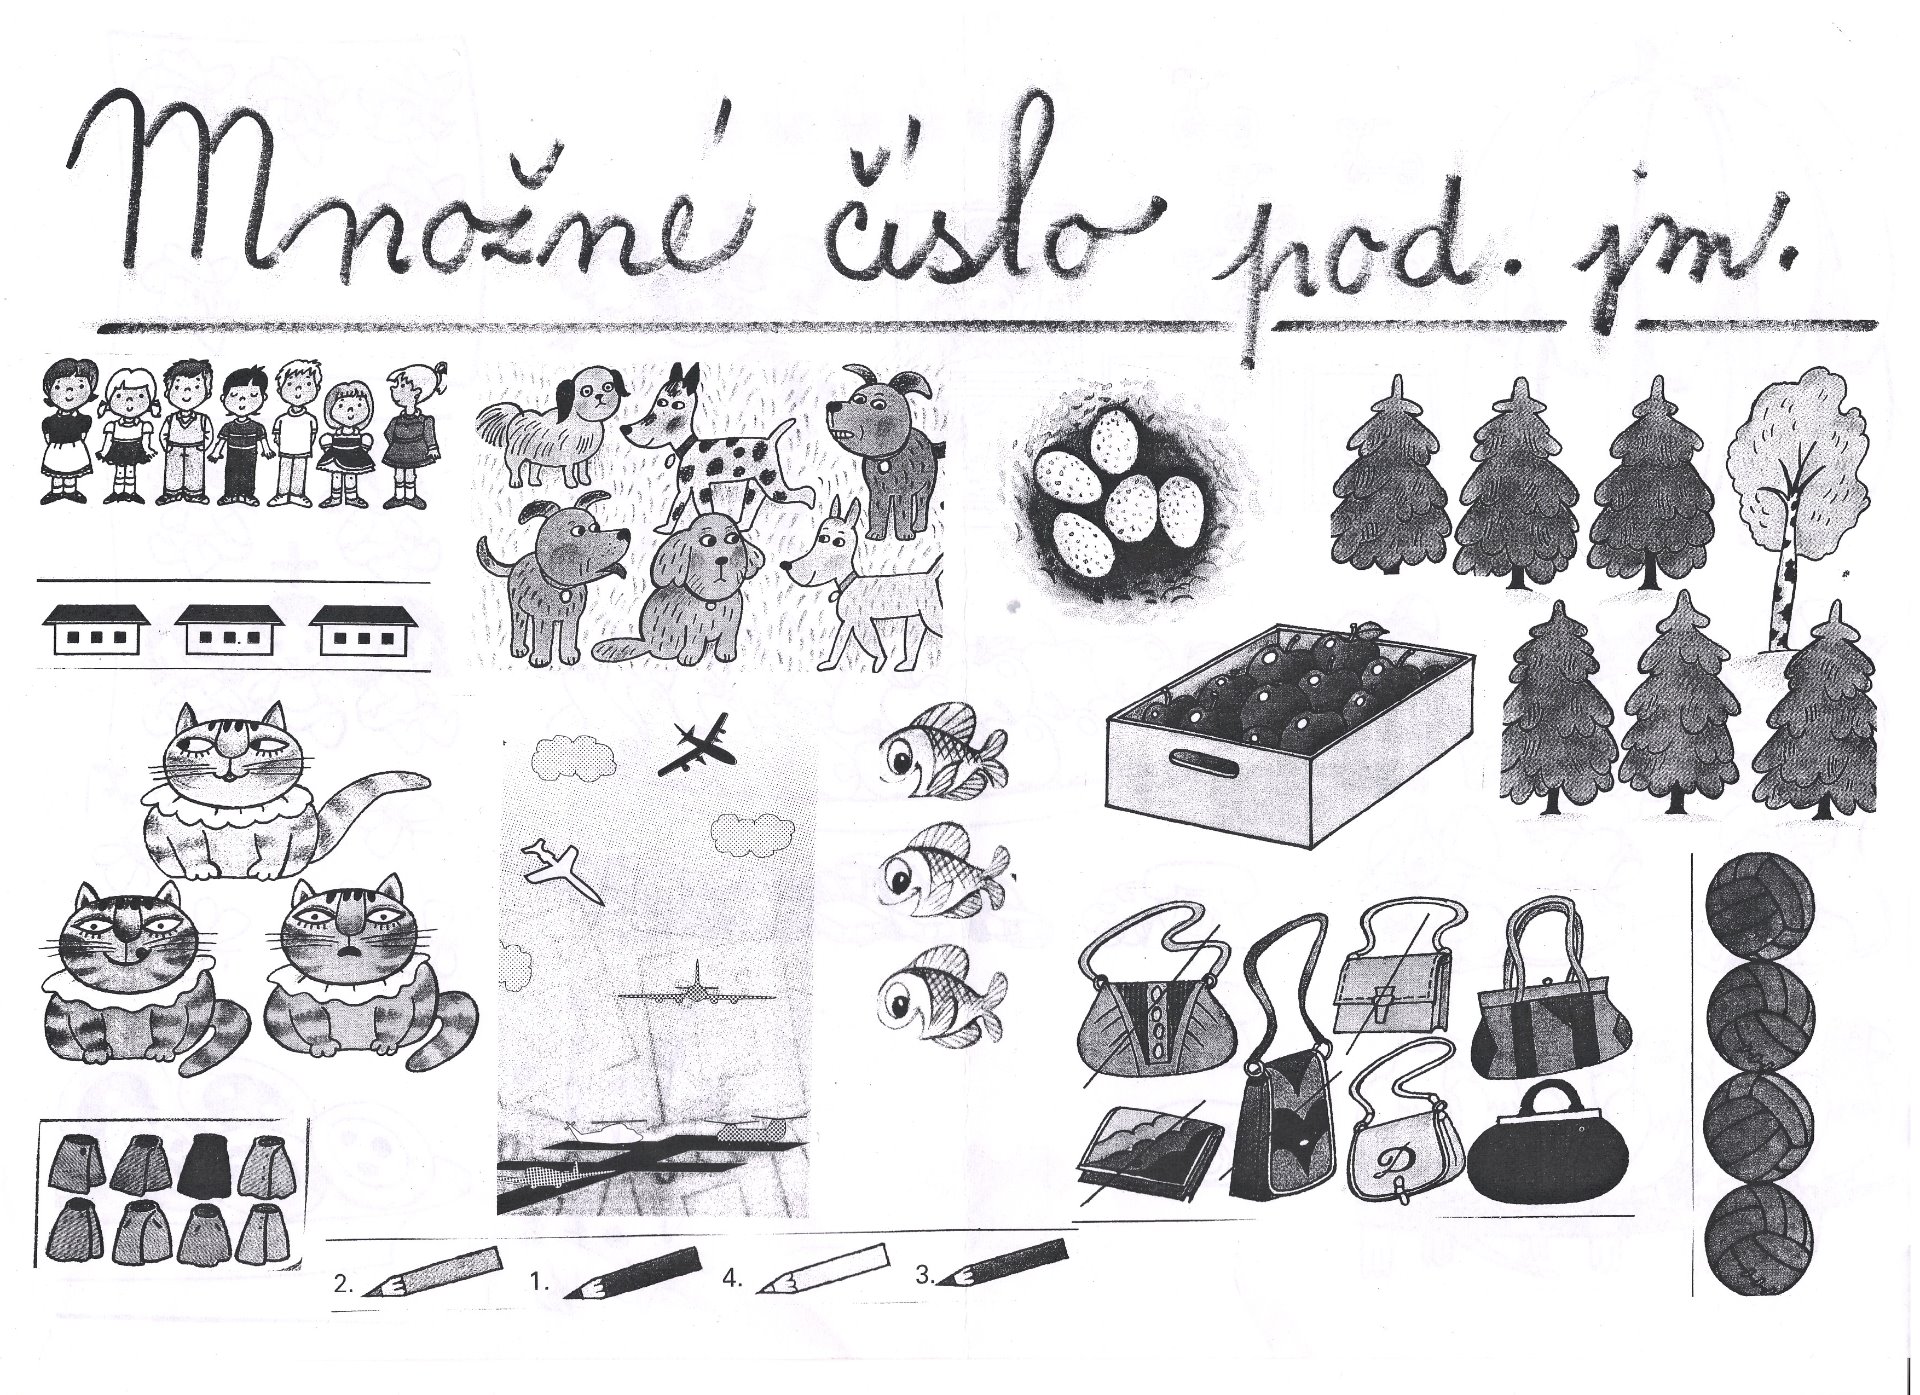 Množné číslo pod. jm.
D
2. 1. 4. 3.